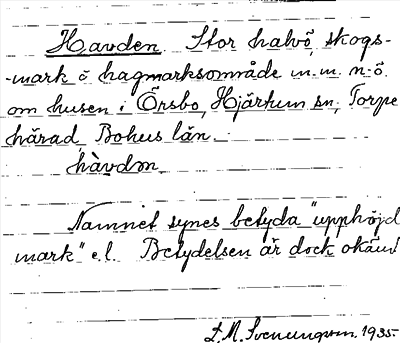 Havden. Stor halvö, skogs-
-mark o hagmarksområde m.m. n.ö.
om husen i Örsbo, Hjärtum sn, Torpe
härad, Bohus län.
hàvdm
Namnet synes betyda "upphöjd
mark" e.l. Betydelsen är dock okänd
1935